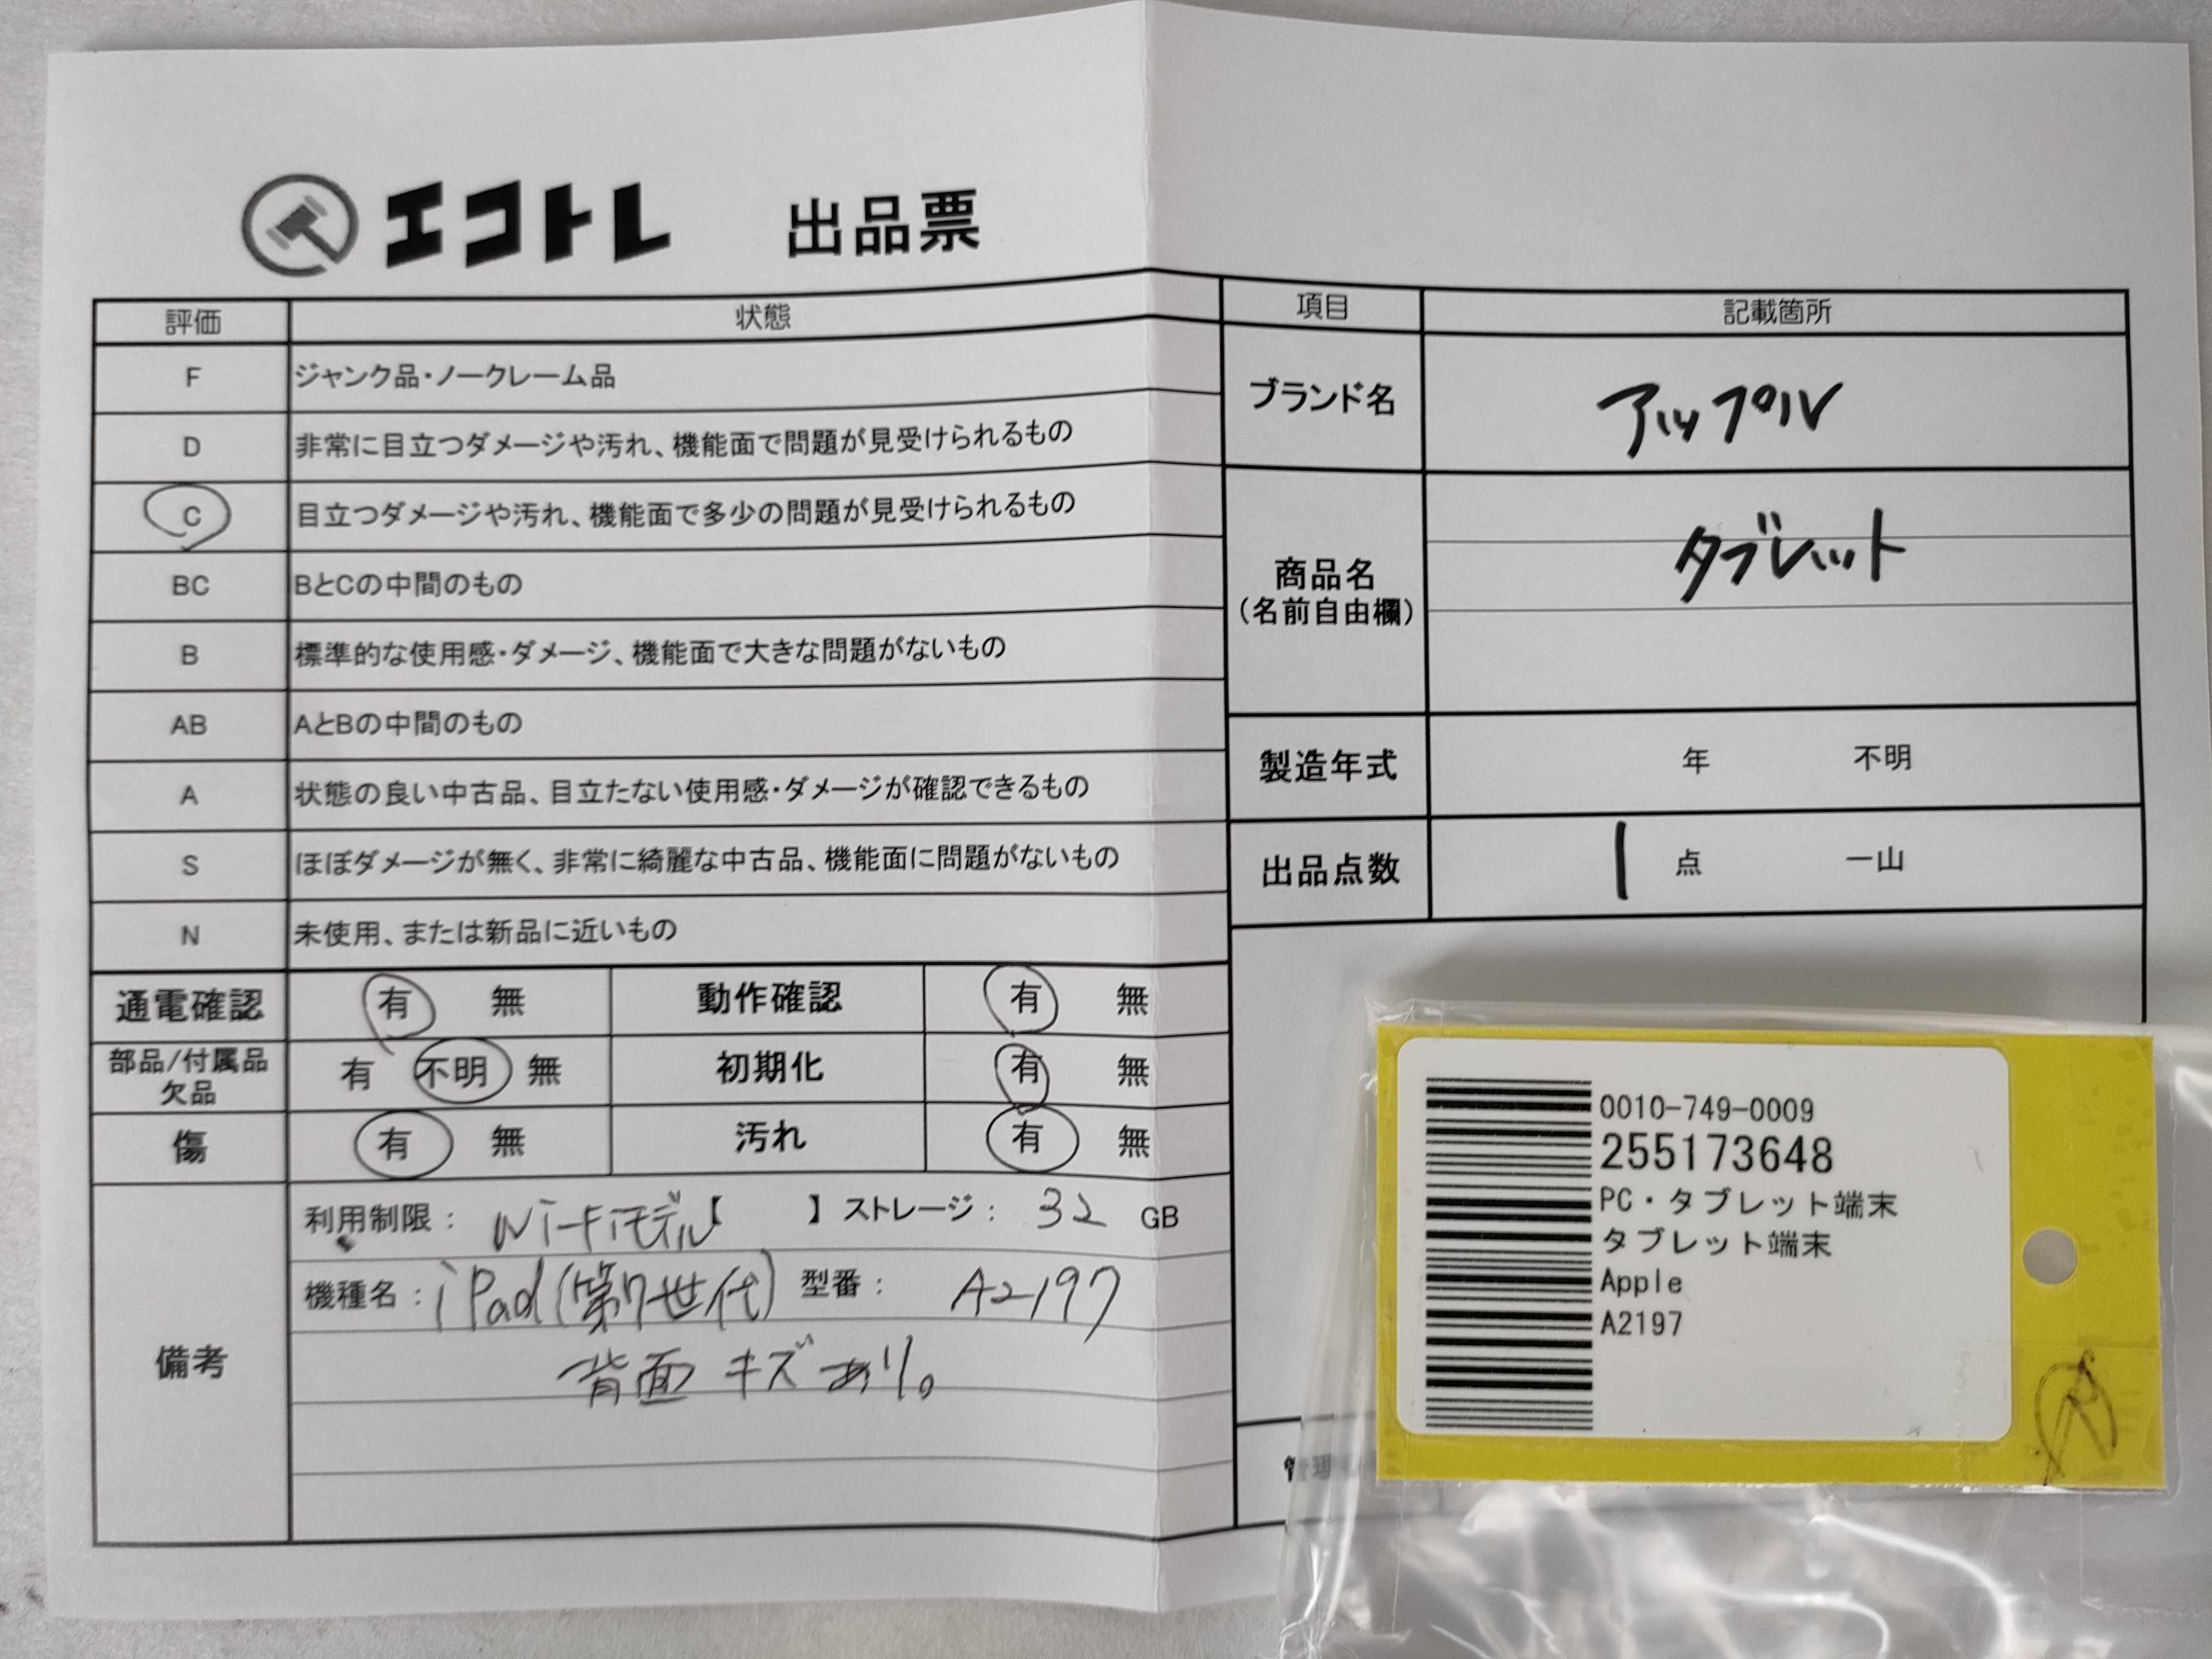 エコトレ 出品票
評価 状態
F ジャンク品・ノークレーム品
D 非常に目立つダメージや汚れ、機能面で問題が見受けられるもの
C 目立つダメージや汚れ、機能面で多少の問題が見受けられるもの
BC BとCの中間のもの
B 標準的な使用感・ダメージ、機能面で大きな問題がないもの
AB AとBの中間のもの
A 状態の良い中古品、目立たない使用感・ダメージが確認できるもの
S ほぼダメージが無く、非常に綺麗な中古品、機能面に問題がないもの
N 未使用、または新品に近いもの
通電確認 有 無 動作確認 有 無
部品/付属品
欠品 有 不明 無 初期化 有 無
傷 有 無 汚れ 有 無
備考
利用制限: Wi-Fiモデル【 】ストレージ: 32 GB
機種名: iPad(第7世代) 型番: A2197
背面 キズあり。
項目 記載箇所
ブランド名 アップル
商品名
(名前自由欄) タブレット
製造年式 年 不明
出品点数 1 点 一山
管理
0010-749-0009
255173648
PC・タブレット端末
タブレット端末
Apple
A2197